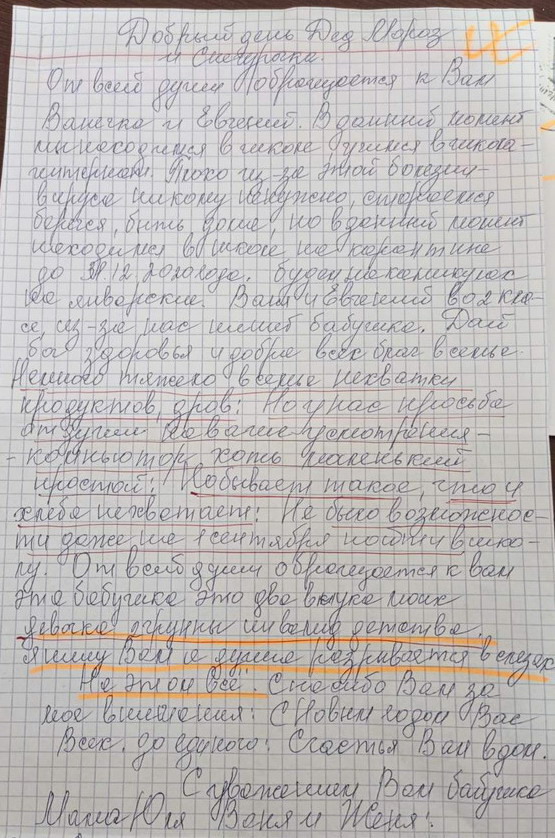 Добрый день Дед Мороз
и Снегурочка.
От всей души обращается к Вам
Ванечка и Евгений. В данный момент
мы находимся в школе учимся в школа-
интернат. Плохо из-за этой болезни-
вируса никому не нужно, стараемся
беречся, быть дома, но в данный момент
находимся в школе на карантине
до 12.2020 года. будем на каникулах
на январские. Ваня и Евгений во 2 кла-
се, из-за нас пишит бабушка. Дай
бог здоровья и добра всех благ в семье.
Немного тяжело в семье нехватки
продуктов, дров: Но у нас просьба
от души на ваше усмотрения-
- компьютор хоть маленький
простой: Но бывает такое, что и
хлеба нехватает: Не было возможнос-
ти даже на 1 сентября пойти в шко-
лу. От всей души обращается к вам
эта бабушка это два внука моих
девочка группы инвалид детства,
я пишу Вам и душа разривается в слезах
На этом всё. Спасибо Вам за
мое внимания: С Новым годом Вас
Всех. до единого: Счастья Вам в дом.
С уважением Вам бабушка
Мама Юля Ваня и Женя.